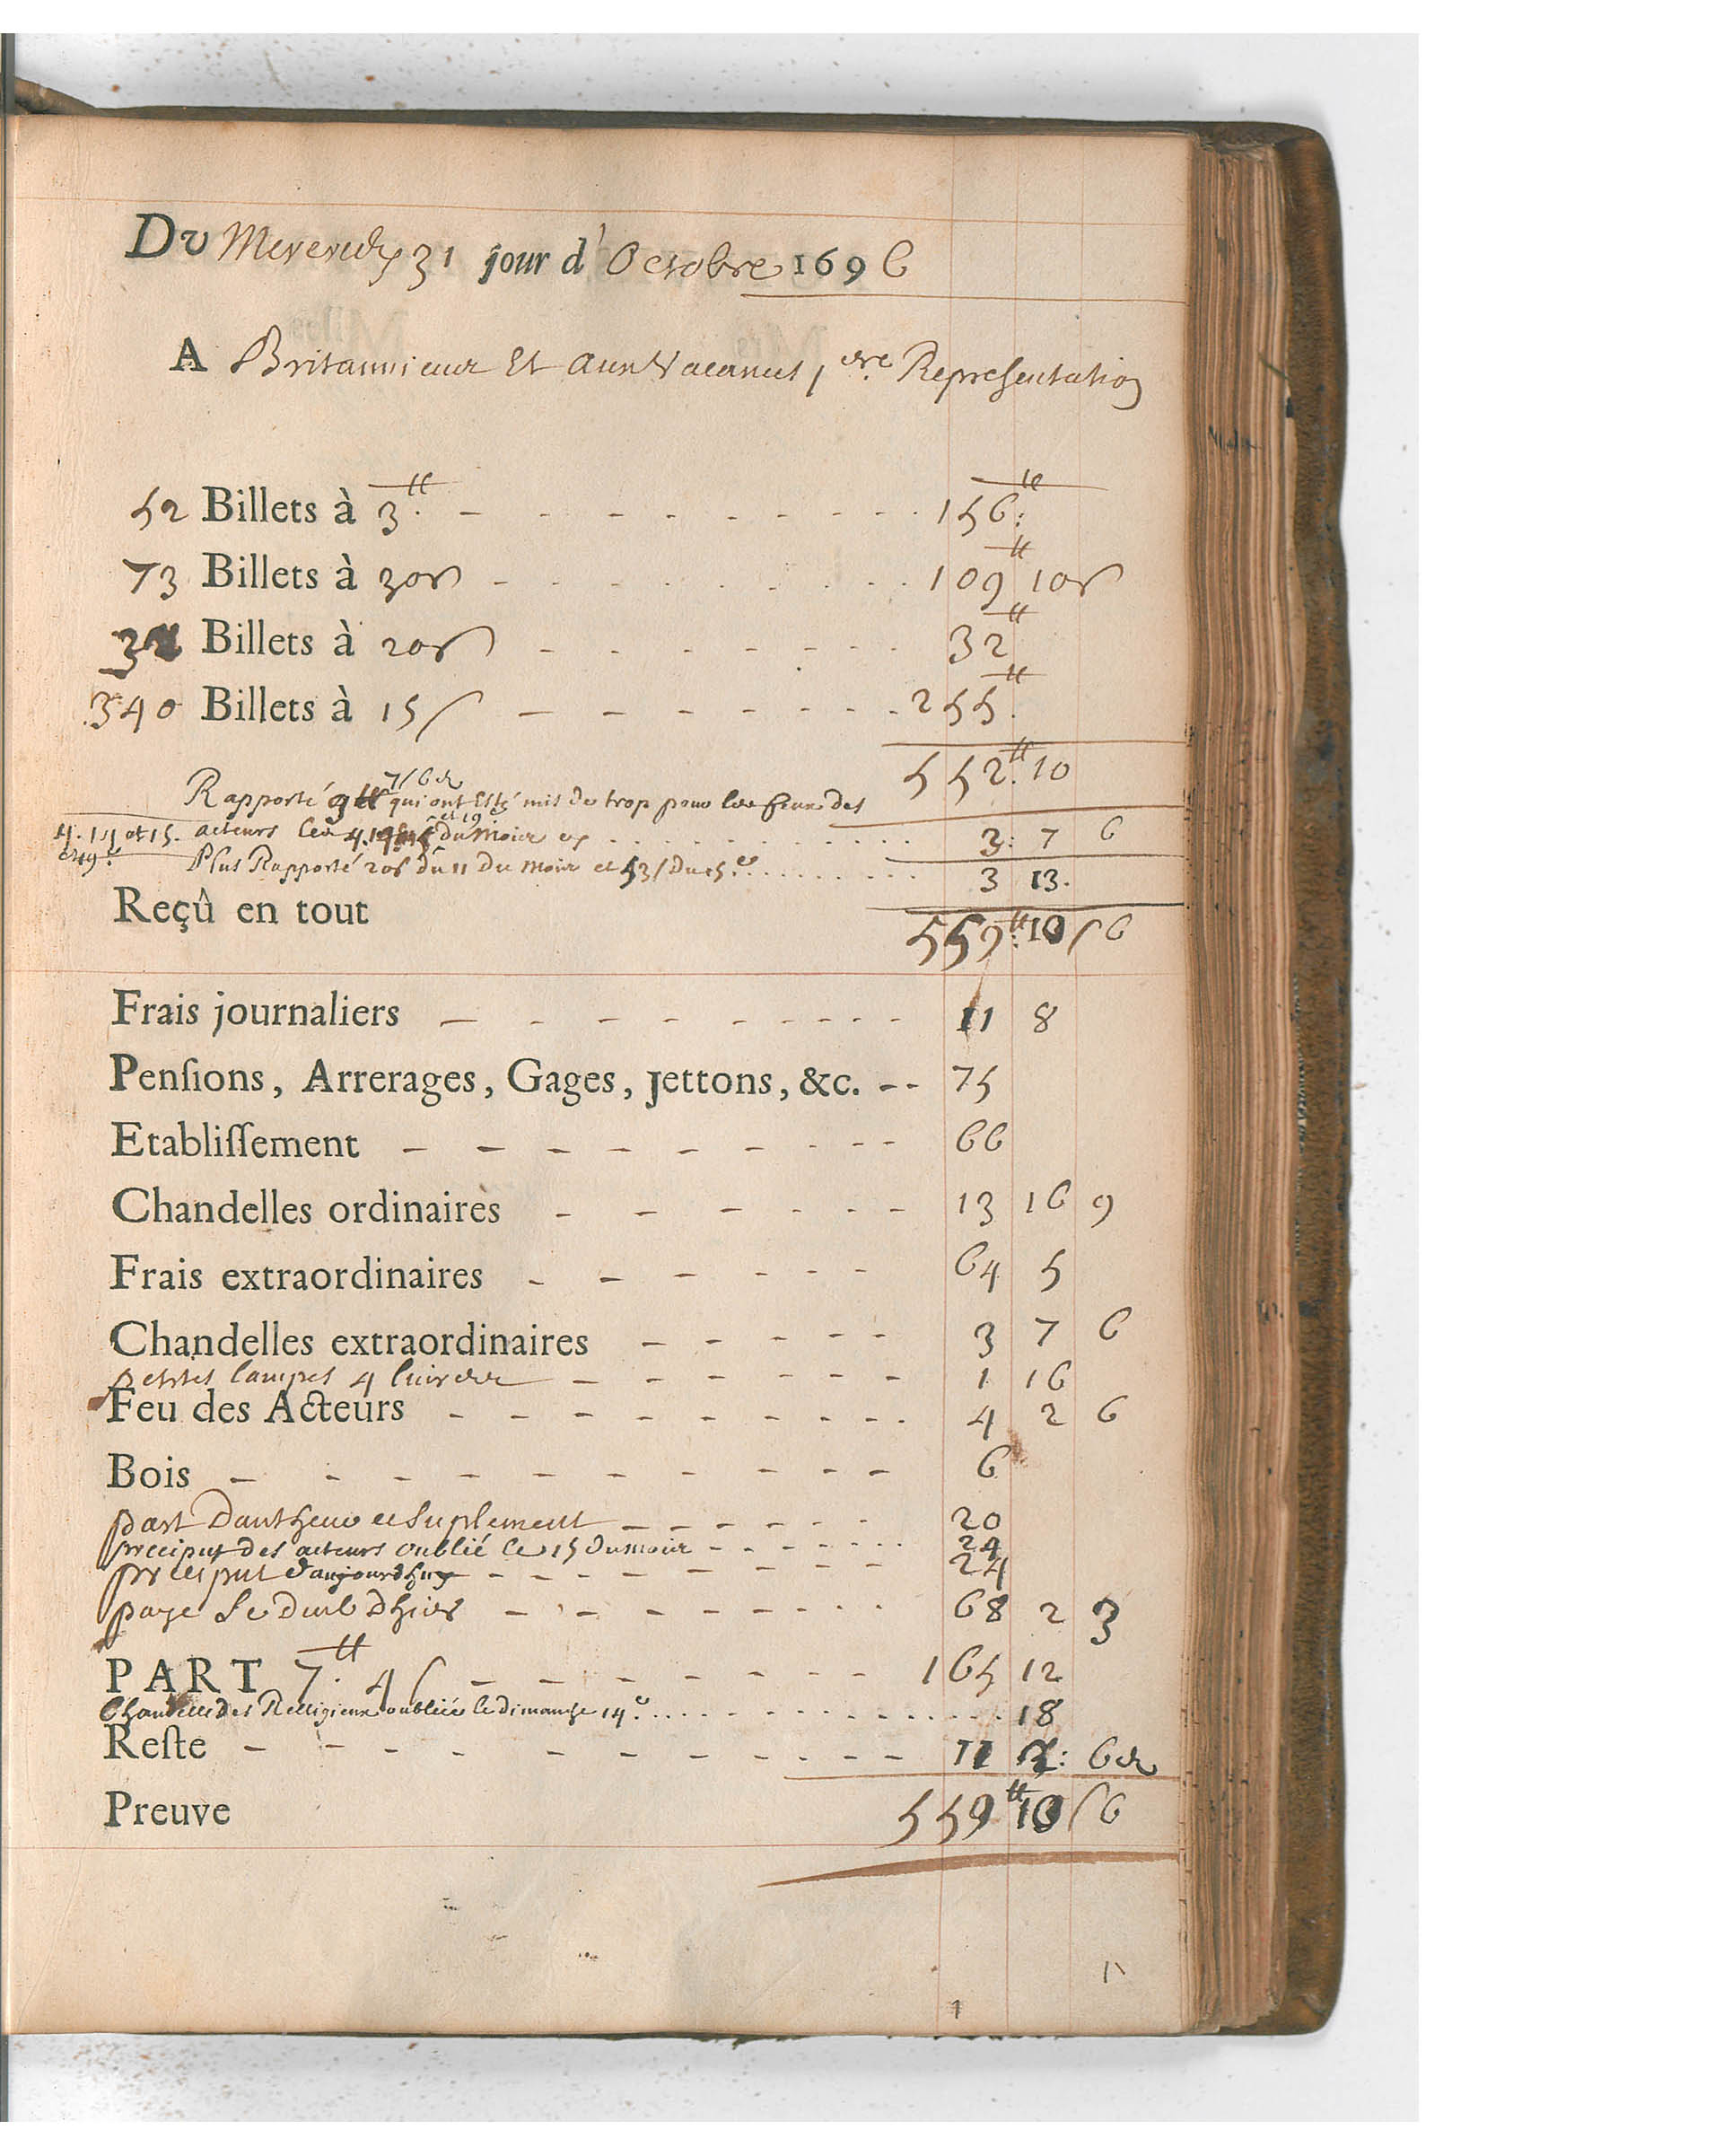 Du Mercredy 31 jour d' Octobre 1696
A Britannicus Et aux Vacances 1ere Representation
52 Billets à 3tt. 156tt:
73 Billets à 30s 109tt 10s
32 Billets à 20s 32tt
340 Billets à 15s 255tt.
552tt. 10
Rapporté 7s 6d qui ont Esté mis de trop pour les feux des 
4. 14 et 15. acteurs les et 19e du mois cy 3: 7 6
et 19e. Plus Rapporté 20s du 11 Du mois et 53s Du 15.e 3 13.
Reçû en tout 559tt: 10s 6
Frais journaliers 11 8
Penſions, Arrerages, Gages, Jettons, &c. 75
Etabliſſement 66
Chandelles ordinaires 13 16 9
Frais extraordinaires 64 5
Chandelles extraordinaires 3 7 6
petites lampes 4 livres 1 16
Feu des Acteurs 4 2 6
Bois 6
part Dautheur et Suplement 20
preciput des acteurs oublié le 15 du mois 24
preciput d'aujourdhuy 24
payé le dub dhier 68 2 3
PART 7tt. 4s 165 12
Chandelles des Religieux oubliée le dimanche 14.e 18
Reſte 11 : 6d
Preuve 559tt 10s 6